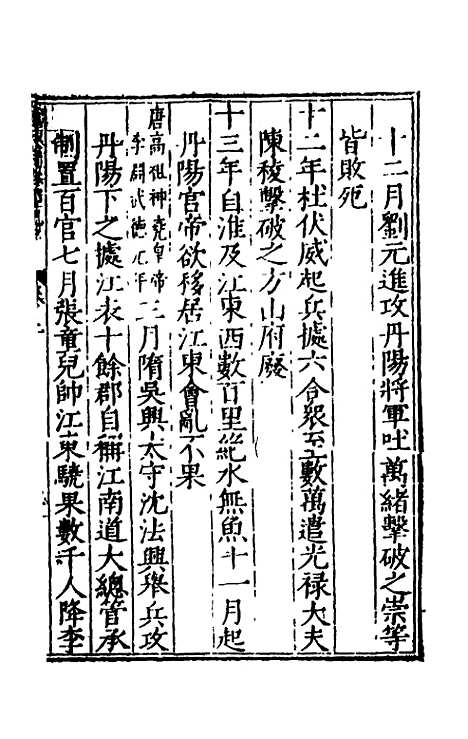 十二月劉元進攻丹陽將軍吐萬緒擊破之崇等
皆敗死
十二年杜伏威起兵據六合衆至數萬遣光禄大夫
陳稜擊破之方山府廢
十三年自淮及江東西數百里絶水無魚十一月起
丹陽宫帝欲移居江東會亂不果
唐高祖神堯皇帝
李淵武德元年三月隋吳興太守沈法興舉兵攻
丹陽下之據江表十餘郡自稱江南道大總管承
制置百官七月張童兒帥江東驍果數千人降李